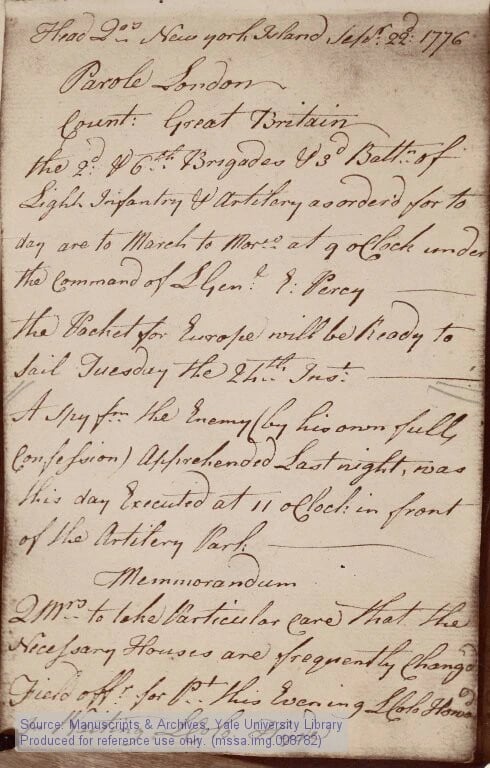 Head Qrs New york Island Sepr. 22d: 1776
Parole London
Count: Great Britain
the 2d. & 6th Brigades & 3d Battn of
Light Infantry & Artilery as orderd for to
day are to March to Morro at 9 oClock under
the Command of LGenl E: Percy
the Packet for Europe will be Ready to
Sail Tuesday the 24th Inst
A spy fm the Enemy (by his own full
Confession) Apprehended Last night, was
this day Executed at 11 oClock in front
of the Artilery Park
Memmorandum
QMrs to take Particular care that the
Necessary Houses are frequently Changd
Field offr. for Pt this Evening LColo Howard
Source: Manuscripts & Archives, Yale University Library
Produced for reference use only. (mssa.img.008782)